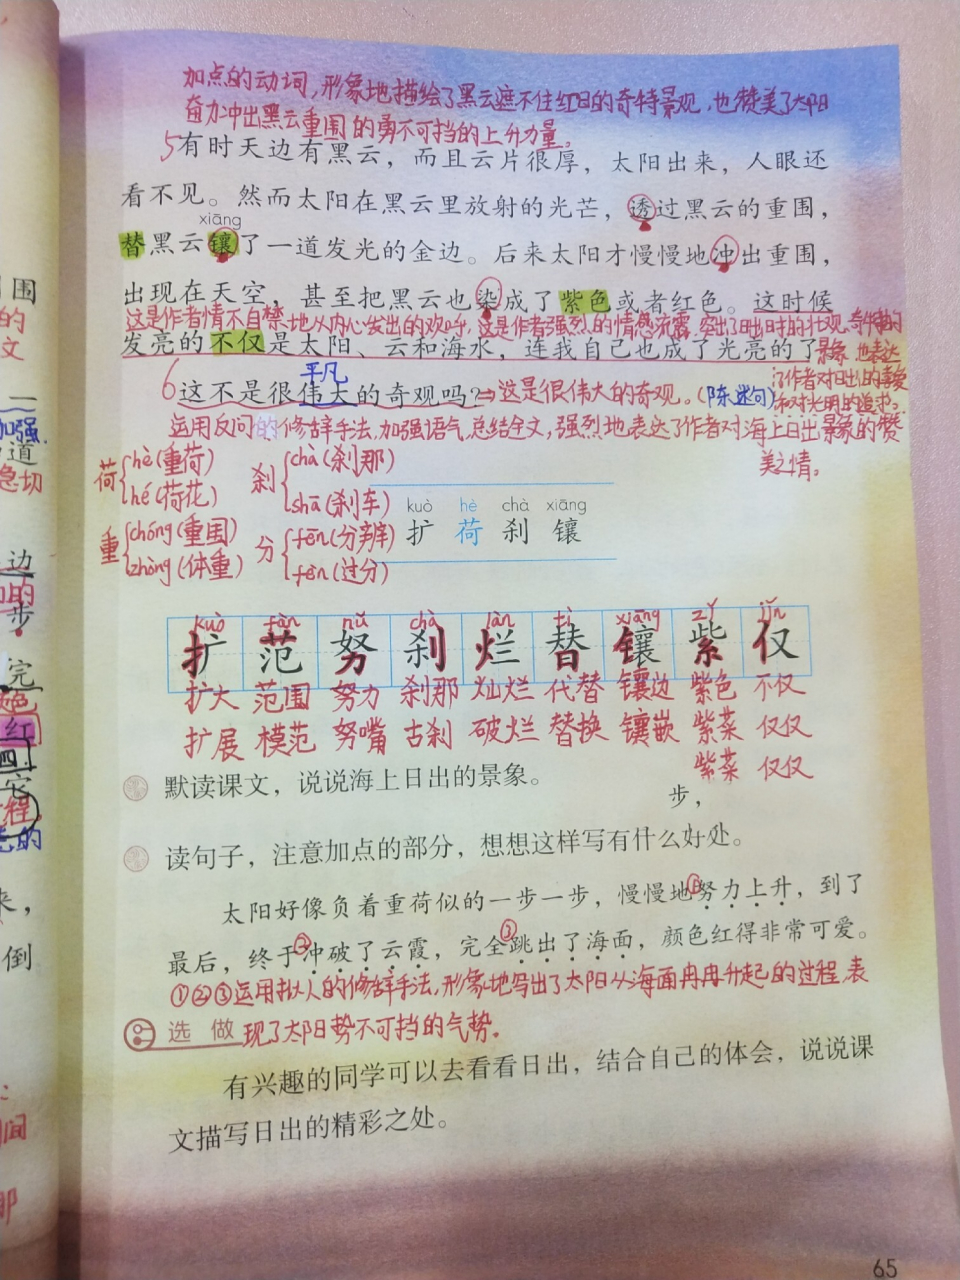 加点的动词,形象地描绘了黑云遮不住红日的奇特景观,也赞美了太阳
奋力冲出黑云重围的勇不可挡的上升力量。
5有时天边有黑云，而且云片很厚，太阳出来，人眼还
看不见。然而太阳在黑云里放射的光芒，透过黑云的重围，
xiāng
替黑云镶了一道发光的金边。后来太阳才慢慢地冲出重围，
出现在天空，甚至把黑云也染成了紫色或者红色。这时候
这是作者情不自禁地从内心发出的欢呼,这是作者强烈的情感流露,突出了日出时的壮观、奇特的
发亮的不仅是太阳、云和海水，连我自己也成了光亮的了
景象,也表达
了作者对日出的喜爱
和对光明的追求。
平凡
6这不是很伟大的奇观吗?⇒这是很伟大的奇观。(陈述句)
运用反问的修辞手法,加强语气,总结全文,强烈地表达了作者对海上日出景象的赞
美之情。
荷 hè(重荷) hé(荷花)
刹 chà(刹那) shā(刹车)
重 chóng(重围) zhòng(体重)
分 fēn(分辨) fèn(过分)
kuò hè chà xiāng
扩 荷 刹 镶
kuò fàn nǔ chà làn tì xiāng zǐ jǐn
扩 范 努 刹 烂 替 镶 紫 仅
扩大 范围 努力 刹那 灿烂 代替 镶边 紫色 不仅
扩展 模范 努嘴 古刹 破烂 替换 镶嵌 紫菜 仅仅
紫菜 仅仅
默读课文，说说海上日出的景象。
步，
读句子，注意加点的部分，想想这样写有什么好处。
太阳好像负着重荷似的一步一步，慢慢地①努力上升，到了
最后，终于②冲破了云霞，完全③跳出了海面，颜色红得非常可爱。
①②③运用拟人的修辞手法,形象地写出了太阳从海面冉冉升起的过程,表
选做 现了太阳势不可挡的气势。
有兴趣的同学可以去看看日出，结合自己的体会，说说课
文描写日出的精彩之处。
65
围
的
文
一
加强
道
急切
边
的
步
完
色
红
四
它
程
的
来，
倒
间
那